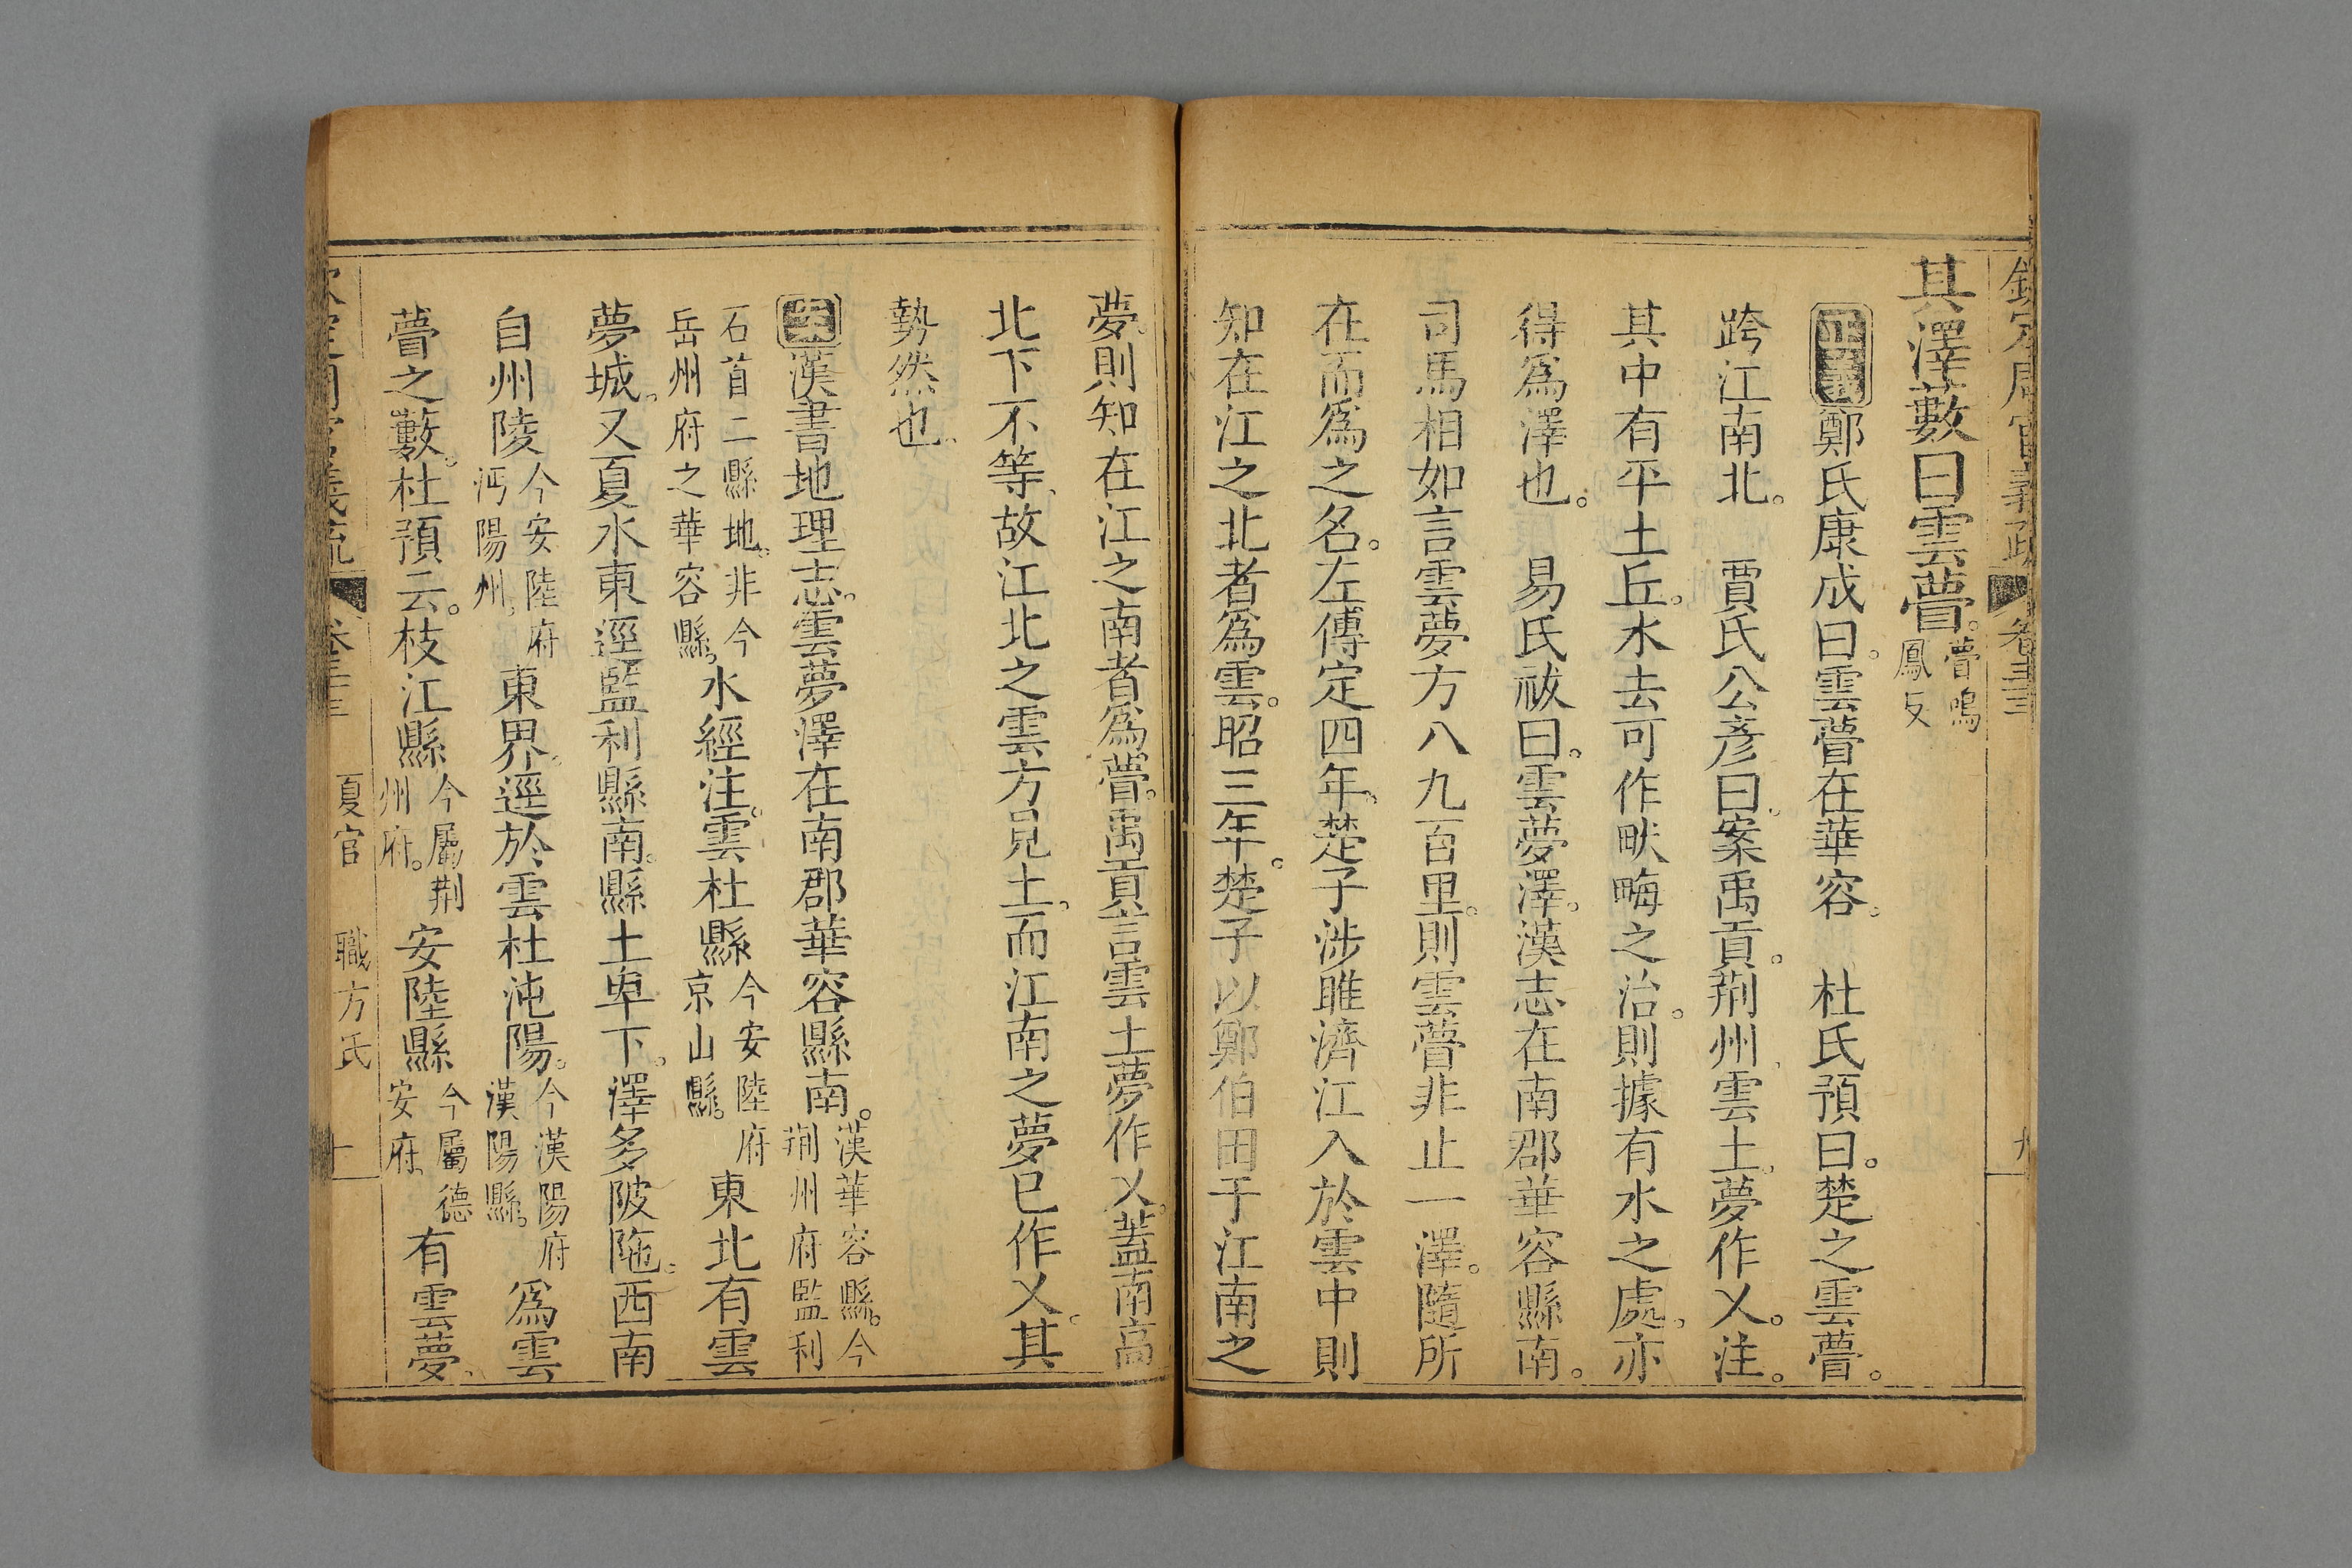 欽定周官義疏 卷三十三
其澤藪曰雲瞢。瞢鳴鳳反
正義鄭氏康成曰。雲瞢在華容。 杜氏預曰。楚之雲瞢。
跨江南北。 賈氏公彥曰。案禹貢。荆州、雲土。夢作乂。注。
其中有平土丘。水去可作畎畮之治。則據有水之處。亦
得爲澤也。 易氏祓曰。雲夢澤。漢志在南郡華容縣南。
司馬相如言雲夢方八九百里。則雲瞢非止一澤。隨所
在而爲之名。左傳定四年。楚子涉睢濟江入於雲中則
知在江之北者爲雲。昭三年。楚子以鄭伯田于江南之
夢。則知在江之南者爲瞢。禹貢言雲土夢作乂。蓋南高
北下不等、故江北之雲方見土。而江南之夢已作乂。其
勢然也。
案漢書地理志。雲夢澤在南郡華容縣南。漢華容縣。今荆州府監利
石首二縣地。非今岳州府之華容縣。水經注。雲杜縣今安陸府京山縣。東北有雲
夢城。又夏水東逕監利縣南。縣土卑下。澤多陂陁。西南
自州陵今安陸府沔陽州。東界。逕於雲杜沌陽。今漢陽府漢陽縣。爲雲
瞢之藪。杜預云。枝江縣今屬荆州府。安陸縣今屬德安府、有雲夢、
夏官 職方氏 十